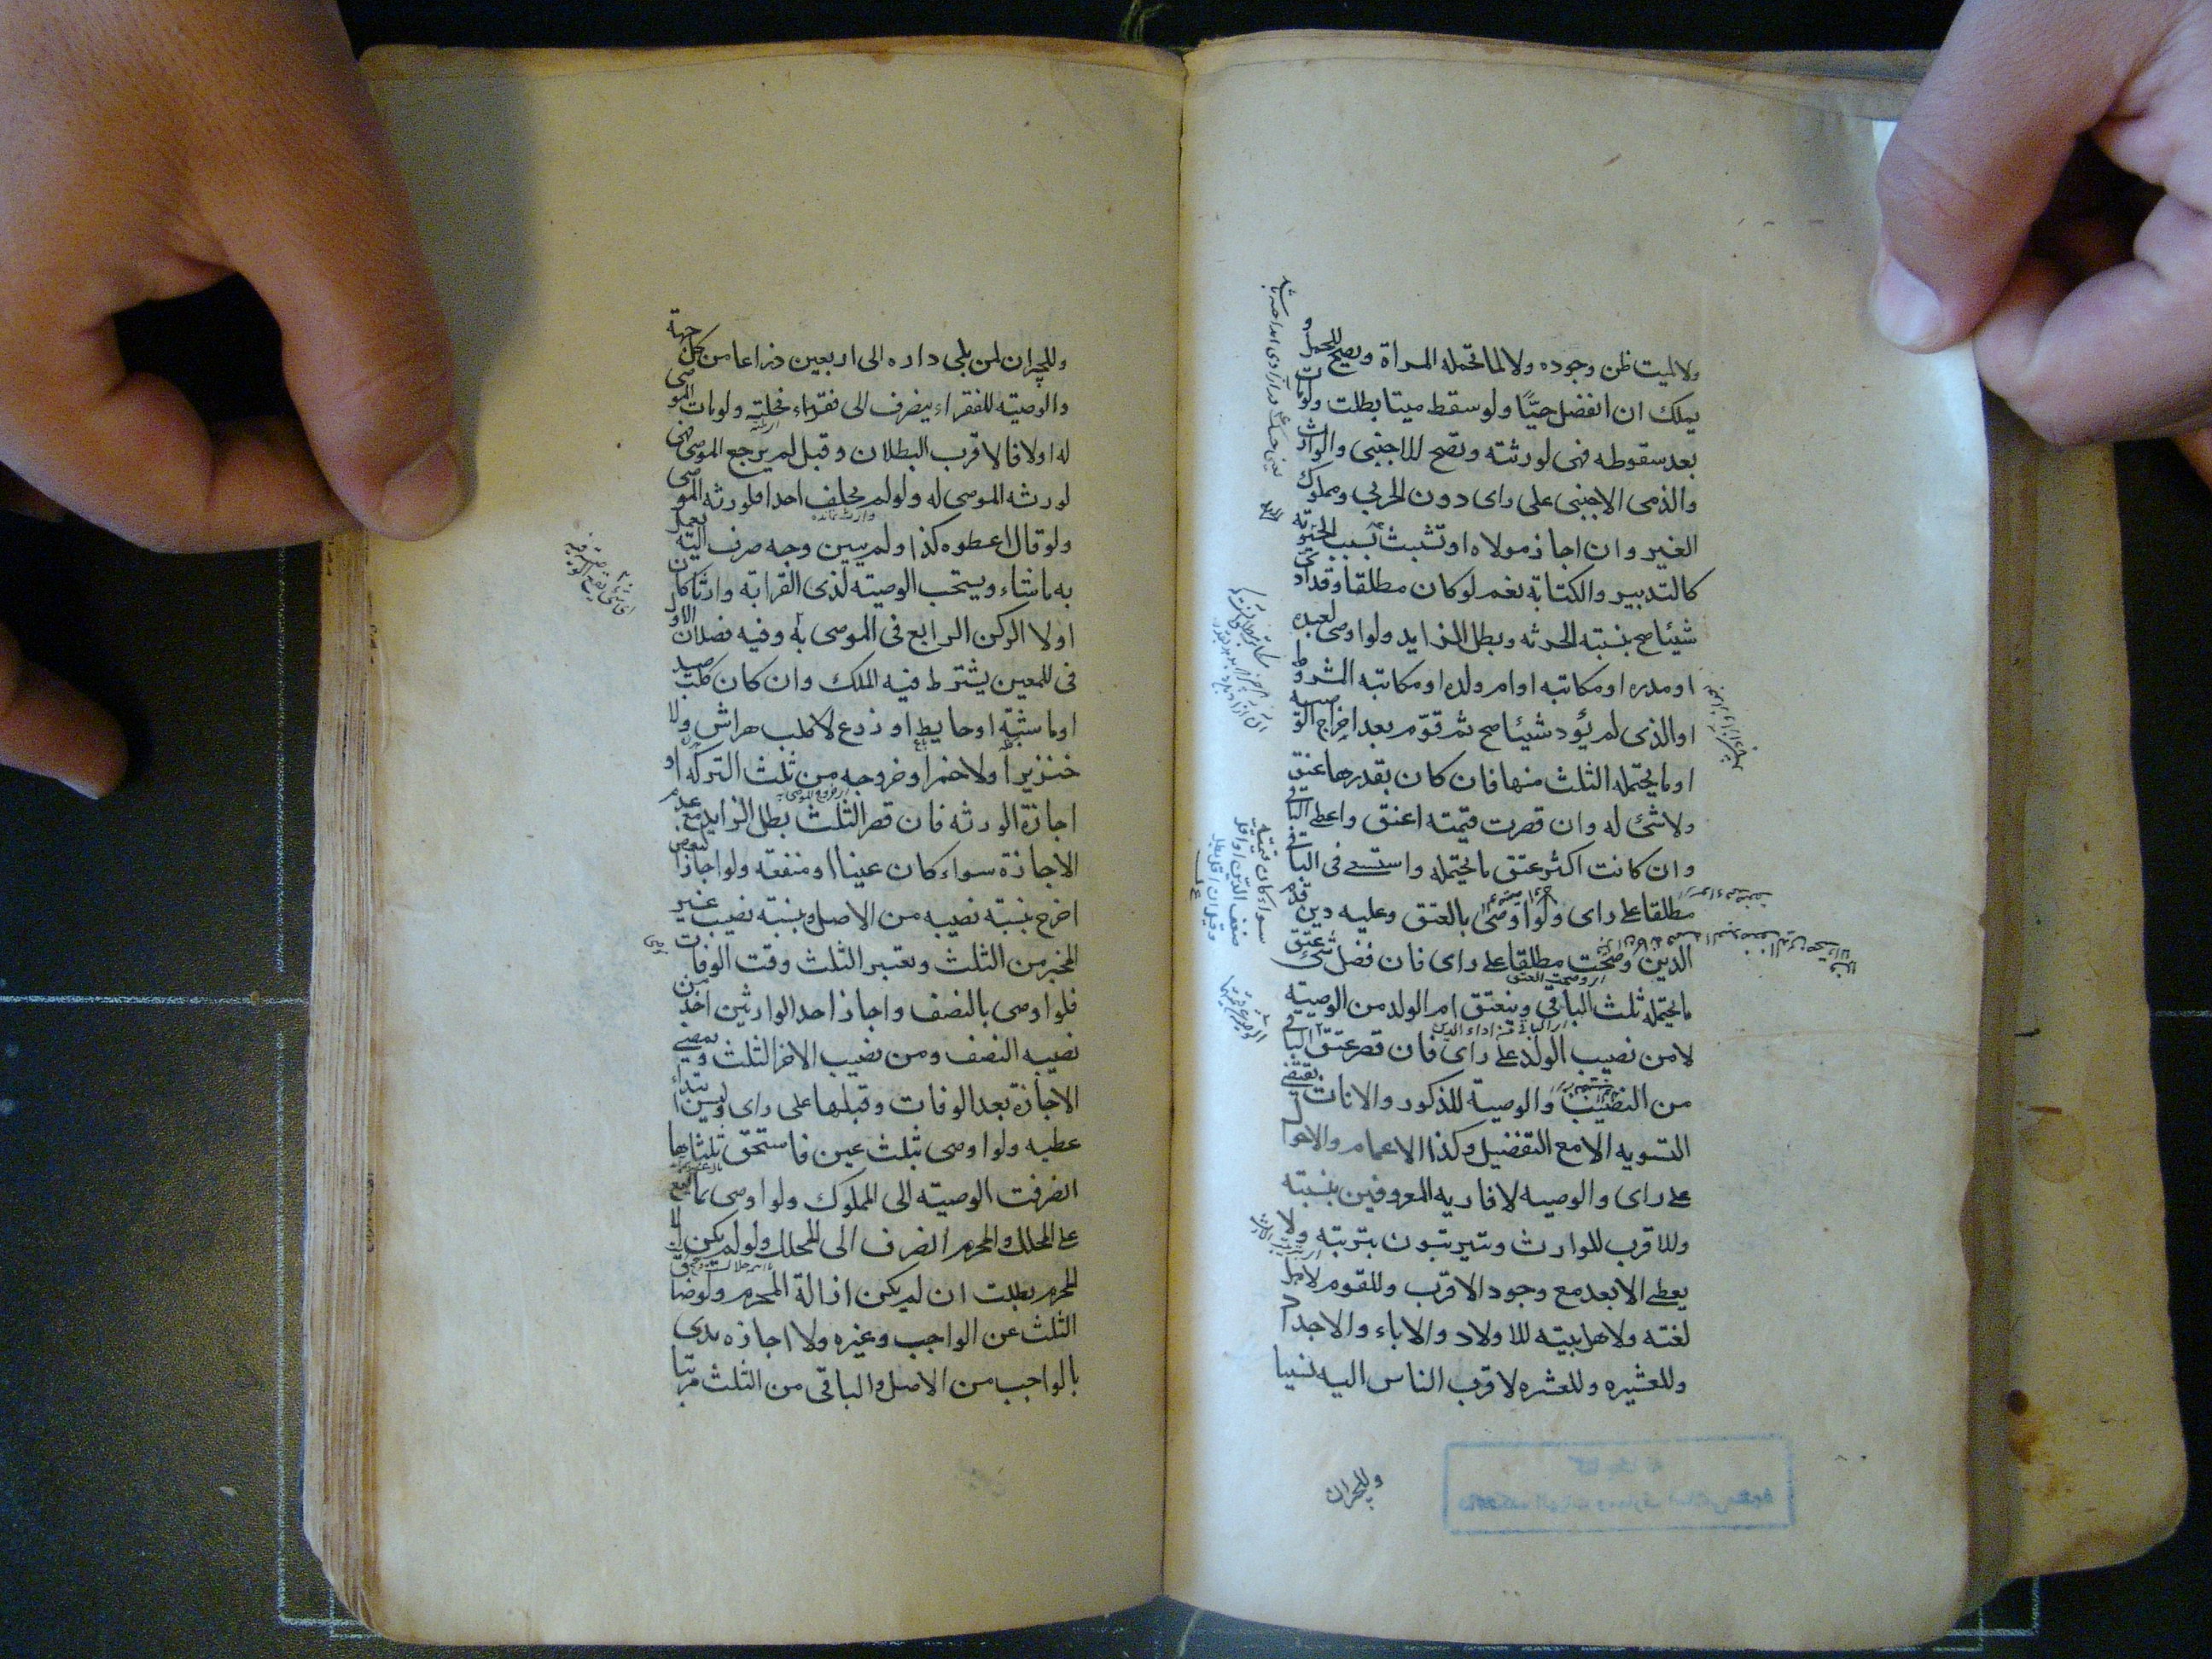 ولا لميت ظن وجوده ولا لما تحمله المراة ويصح للحمل و
يملك ان انفصل حيًّا ولو سقط ميتا بطلت ولو مات
بعد سقوطه فهى لورثته وتصح للاجنبى والوارث
والذمى الاجنبى على راى دون الحربي ومملوك
الغير وان اجاز مولاه او تشبث بسبب الحريّة
كالتدبير والكتابة نعم لو كان مطلقا وقد ادى
شيئا صح بنسبته الحرثه وبطل الزايد ولو اوصى لعبده
او مدبره او مكاتبه او ام ولده او مكاتبه المشروط
او الذى لم يؤد شيئا صح ثم قوّم بعد اخراج الوصية
او ما يحتمله الثلث منها فان كان بقدرها عتق
ولا شئ له وان قصرت قيمته اعتق واعطى الباقى
وان كانت اكثر عتق ما يحتمله واستسعى فى الباقى
مطلقا على راى ولو اوصى بالعتق وعليه دين قدم
الدين وصحت مطلقا على راى فان فضل شئ عتق
ما يحتمله ثلث الباقي وينعتق ام الولد من الوصيته
لا من نصيب الولد على راى فان قصر عتق الباقى
من النصيب والوصية للذكور والاناث تقتضى
التسويه الا مع التفضيل وكذا الاعمام والاخوال
على راى والوصيه لاقاربه المعروفين بنسبته
وللاقرب للوارث ويترتبون بترتبه ولا
يعطى الابعد مع وجود الاقرب وللقوم لاهل
لغته ولاهل بيته للاولاد والاباء والاجداد
وللعشيره وللعشره لاقرب الناس اليه نسبا
وللجيران
وللجيران لمن يلى داره الى اربعين ذراعا من كل جهة
والوصيته للفقراء ينصرف الى فقراء نحلته ولو مات الموصى
له اولا فالاقرب البطلان وقيل لم يرجع الموصى فهى
لورثه الموصى له ولو لم يخلف احدا فلورثه الموصى
ولو قال اعطوه كذا ولم يبين وجه صرف اليه يعمل
به ما شاء ويستحب الوصيته لذى القرابة وارثا كان
اولا الركن الرابع فى الموصى به وفيه فصلان الاول
فى المعين يشترط فيه الملك وان كان كلب صيد
او ماشيته او حايط او زرع لا كلب هراش ولا
خنزيرا ولا خمرا وخروجه من ثلث التركه او
اجازة الورثه فان قصر الثلث بطل الزايد مع عدم
الاجازة سواء كان عينا او منفعه ولو اجاز البعض
اخرج بنسبته نصيبه من الاصل وبنسبته نصيب غير
المخبر من الثلث ويعتبر الثلث وقت الوفات
فلو اوصى بالنصف واجاز احد الوارثين اخذ من
نصيبه النصف ومن نصيب الاخر الثلث ويمضى
الاجازة بعد الوفات وقبلها على راى وليس ابتداء
عطيه ولو اوصى بثلث عين فاستحق ثلثاها
انصرفت الوصيته الى المملوك ولو اوصى بما يقع
على المحلل والمحرم انصرف الى المحلل ولو لم يكن الا
المحرم بطلت ان لم يكن ازالة المحرم ولو ضاق
الثلث عن الواجب وغيره ولا اجازه بدى
بالواجب من الاصل والباقى من الثلث مرتبا